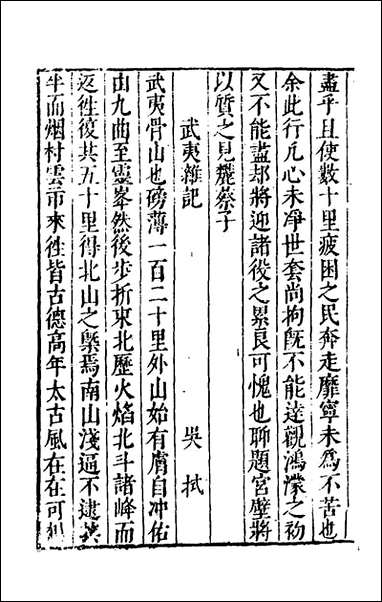 盡乎且使數十里疲困之民奔走靡寧未為不苦也
余此行凡心未淨世套尚拘旣不能達觀鴻濛之初
又不能盡却將迎諸役之累良可愧也聊題宮壁將
以質之見羅蔡子
武夷雜記 吳拭
武夷骨山也磅薄一百二十里外山始有膚自冲佑
由九曲至靈峯然後步折東北歷火焰北斗諸峰而
返徃復共五十里得北山之槩焉南山淺逼不逮其
半而烟村雲市來徃皆古德高年太古風在在可想